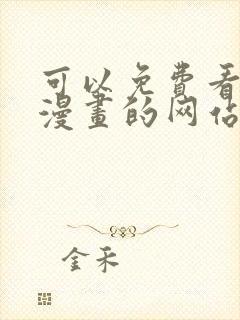 可以免费看
漫畫的网站
金禾